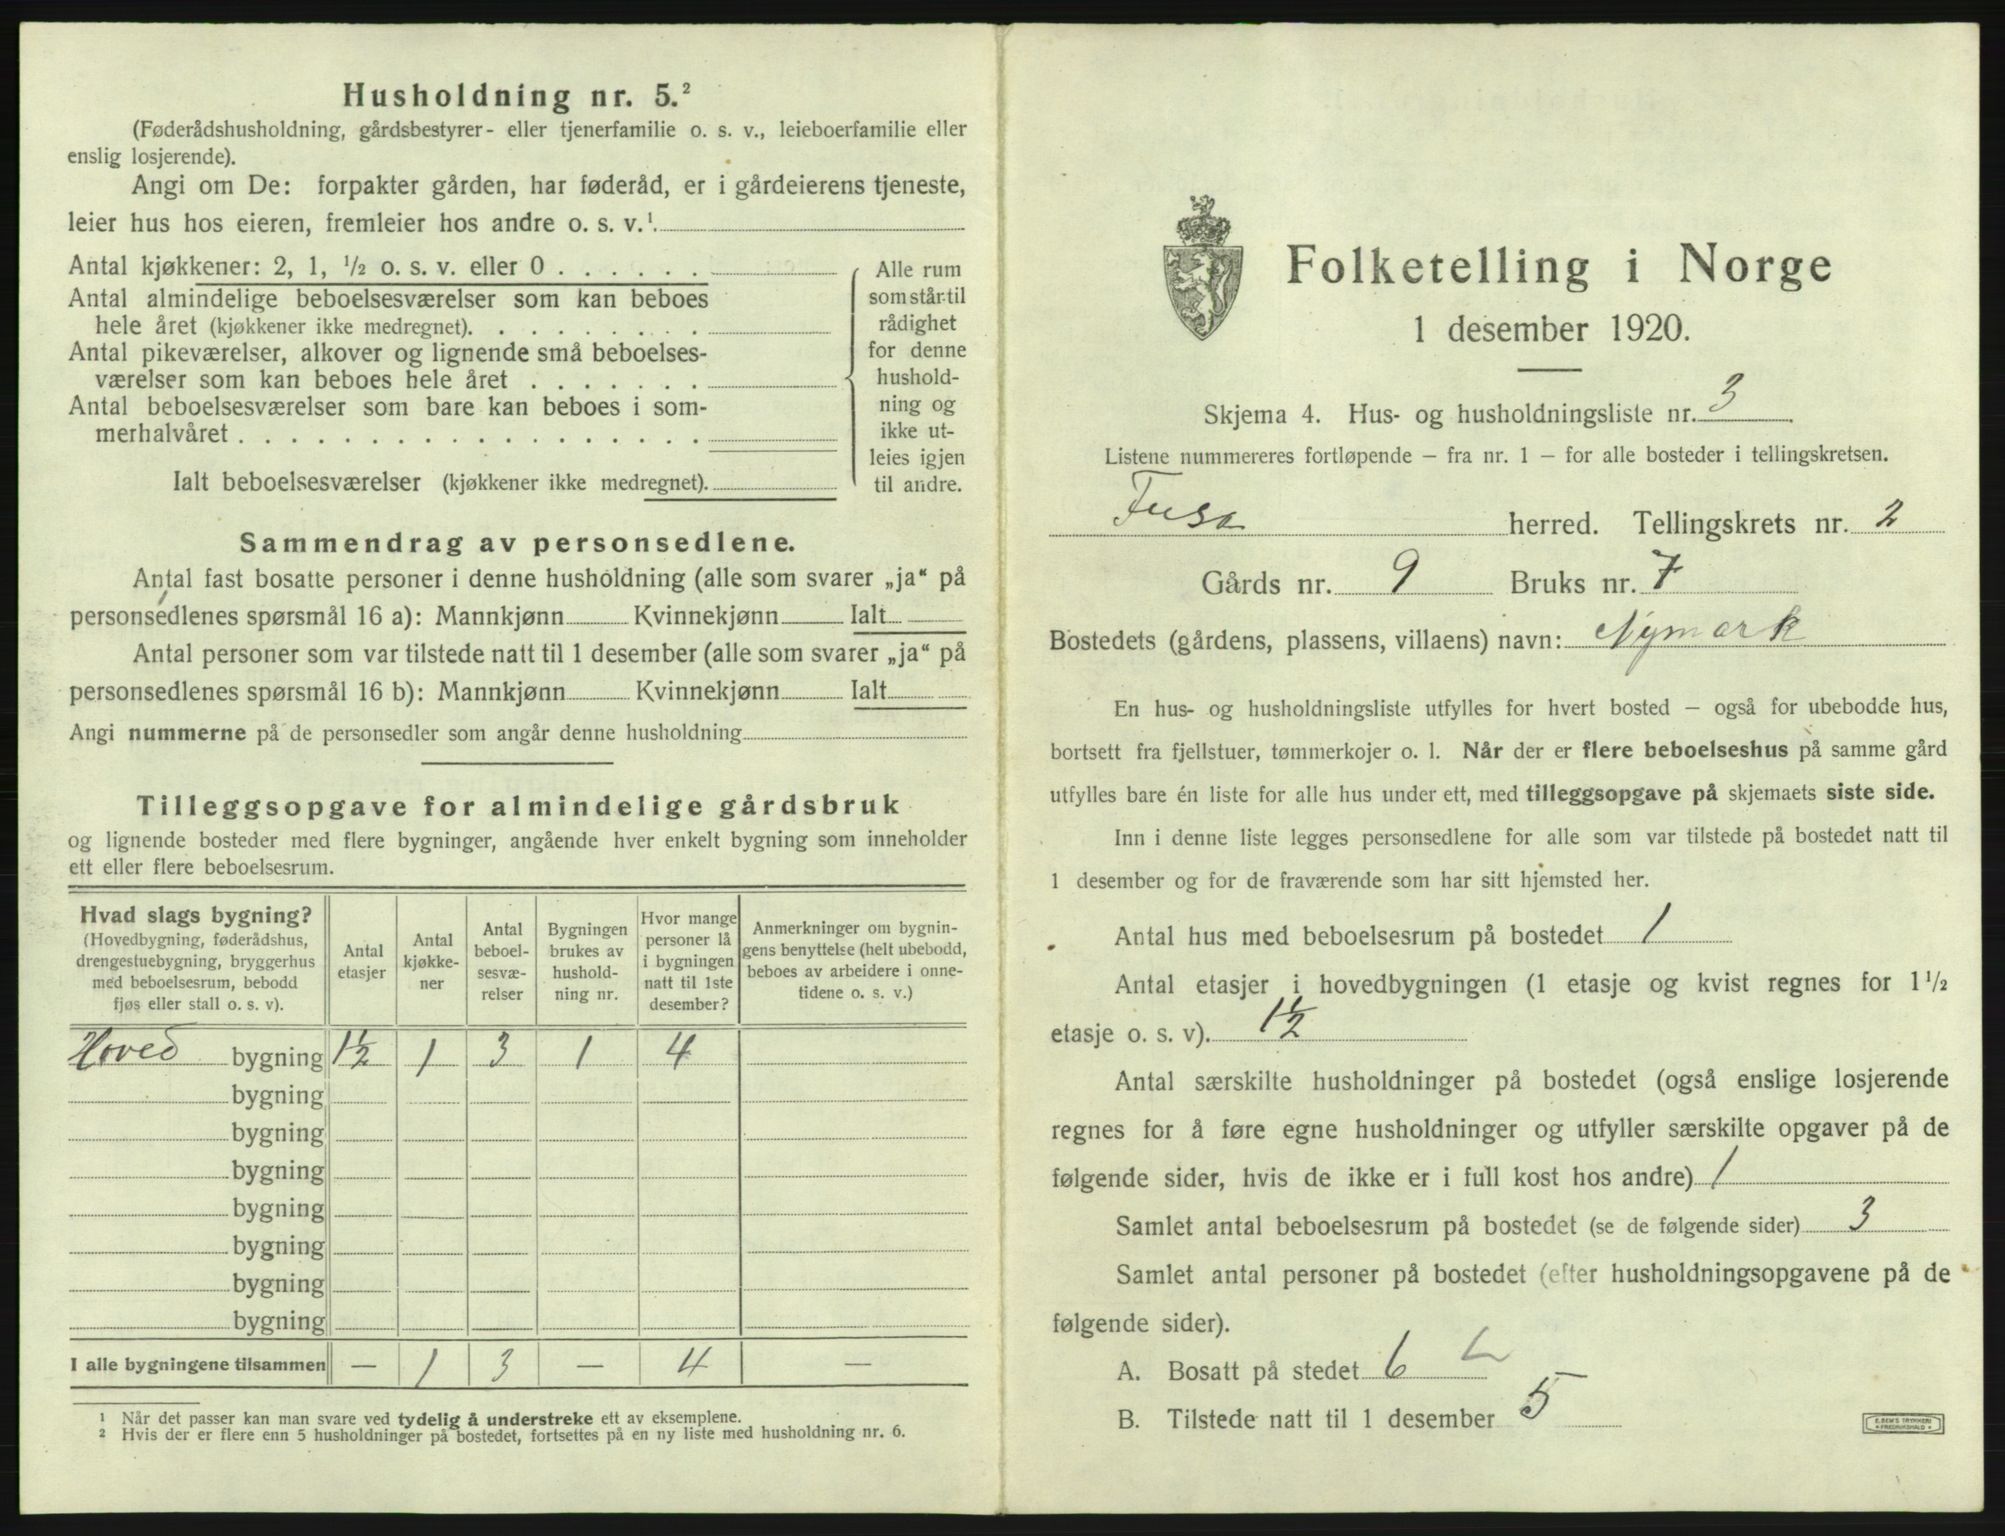 Husholdning nr. 5.²
(Føderådshusholdning, gårdsbestyrer- eller tjenerfamilie o. s. v., leieboerfamilie eller
enslig losjerende).
Angi om De: forpakter gården, har føderåd, er i gårdeierens tjeneste,
leier hus hos eieren, fremleier hos andre o. s. v.¹.
Antal kjøkkener: 2, 1, ½ o. s. v. eller 0 . . . . . .
Antal almindelige beboelsesværelser som kan beboes
hele året (kjøkkener ikke medregnet). . . . . . . . .
Antal pikeværelser, alkover og lignende små beboelses-
værelser som kan beboes hele året . . . . . . .
Antal beboelsesværelser som bare kan beboes i som-
merhalvåret . . . . . . . . . . . . . . . . . .
Ialt beboelsesværelser (kjøkkener ikke medregnet).
Alle rum
som står til
rådighet
for denne
hushold-
ning og
ikke ut-
leies igjen
til andre.
Sammendrag av personsedlene.
Antal fast bosatte personer i denne husholdning (alle som svarer „ja“ på
personsedlenes spørsmål 16 a): Mannkjønn Kvinnekjønn Ialt
Antal personer som var tilstede natt til 1 desember (alle som svarer „ja“ på
personsedlenes spørsmål 16 b): Mannkjønn Kvinnekjønn Ialt
Angi nummerne på de personsedler som angår denne husholdning
Tilleggsopgave for almindelige gårdsbruk
og lignende bosteder med flere bygninger, angående hver enkelt bygning som inneholder
ett eller flere beboelsesrum.
Hvad slags bygning?
(Hovedbygning, føderådshus,
drengestuebygning, bryggerhus
med beboelsesrum, bebodd
fjøs eller stall o. s. v).
Antal
etasjer
Antal
kjøkke-
ner
Antal
beboel-
sesvæ-
relser
Bygningen
brukes av
hushold-
ning nr.
Hvor mange
personer lå
i bygningen
natt til 1ste
desember?
Anmerkninger om bygnin-
gens benyttelse (helt ubebodd,
beboes av arbeidere i onne-
tidene o. s. v.)
Hoved bygning 1½ 1 3 1 4
bygning
bygning
bygning
bygning
bygning
bygning
bygning
I alle bygningene tilsammen — 1 3 — 4 —
¹ Når det passer kan man svare ved tydelig å understreke ett av eksemplene.
² Hvis der er flere enn 5 husholdninger på bostedet, fortsettes på en ny liste med husholdning nr. 6.
Folketelling i Norge
1 desember 1920.
Skjema 4. Hus- og husholdningsliste nr. 3
Listene nummereres fortløpende – fra nr. 1 – for alle bosteder i tellingskretsen.
Fusa herred. Tellingskrets nr. 2
Gårds nr. 9 Bruks nr. 7
Bostedets (gårdens, plassens, villaens) navn: Nymark
En hus- og husholdningsliste utfylles for hvert bosted – også for ubebodde hus,
bortsett fra fjellstuer, tømmerkojer o. l. Når der er flere beboelseshus på samme gård
utfylles bare én liste for alle hus under ett, med tilleggsopgave på skjemaets siste side.
Inn i denne liste legges personsedlene for alle som var tilstede på bostedet natt til
1 desember og for de fraværende som har sitt hjemsted her.
Antal hus med beboelsesrum på bostedet 1
Antal etasjer i hovedbygningen (1 etasje og kvist regnes for 1½
etasje o. s. v). 1½
Antal særskilte husholdninger på bostedet (også enslige losjerende
regnes for å føre egne husholdninger og utfyller særskilte opgaver på de
følgende sider, hvis de ikke er i full kost hos andre) 1
Samlet antal beboelsesrum på bostedet (se de følgende sider) 3
Samlet antal personer på bostedet (efter husholdningsopgavene på de
følgende sider).
A. Bosatt på stedet 6
B. Tilstede natt til 1 desember 5
E. SEM'S TRYKKERI
FREDRIKSHALD